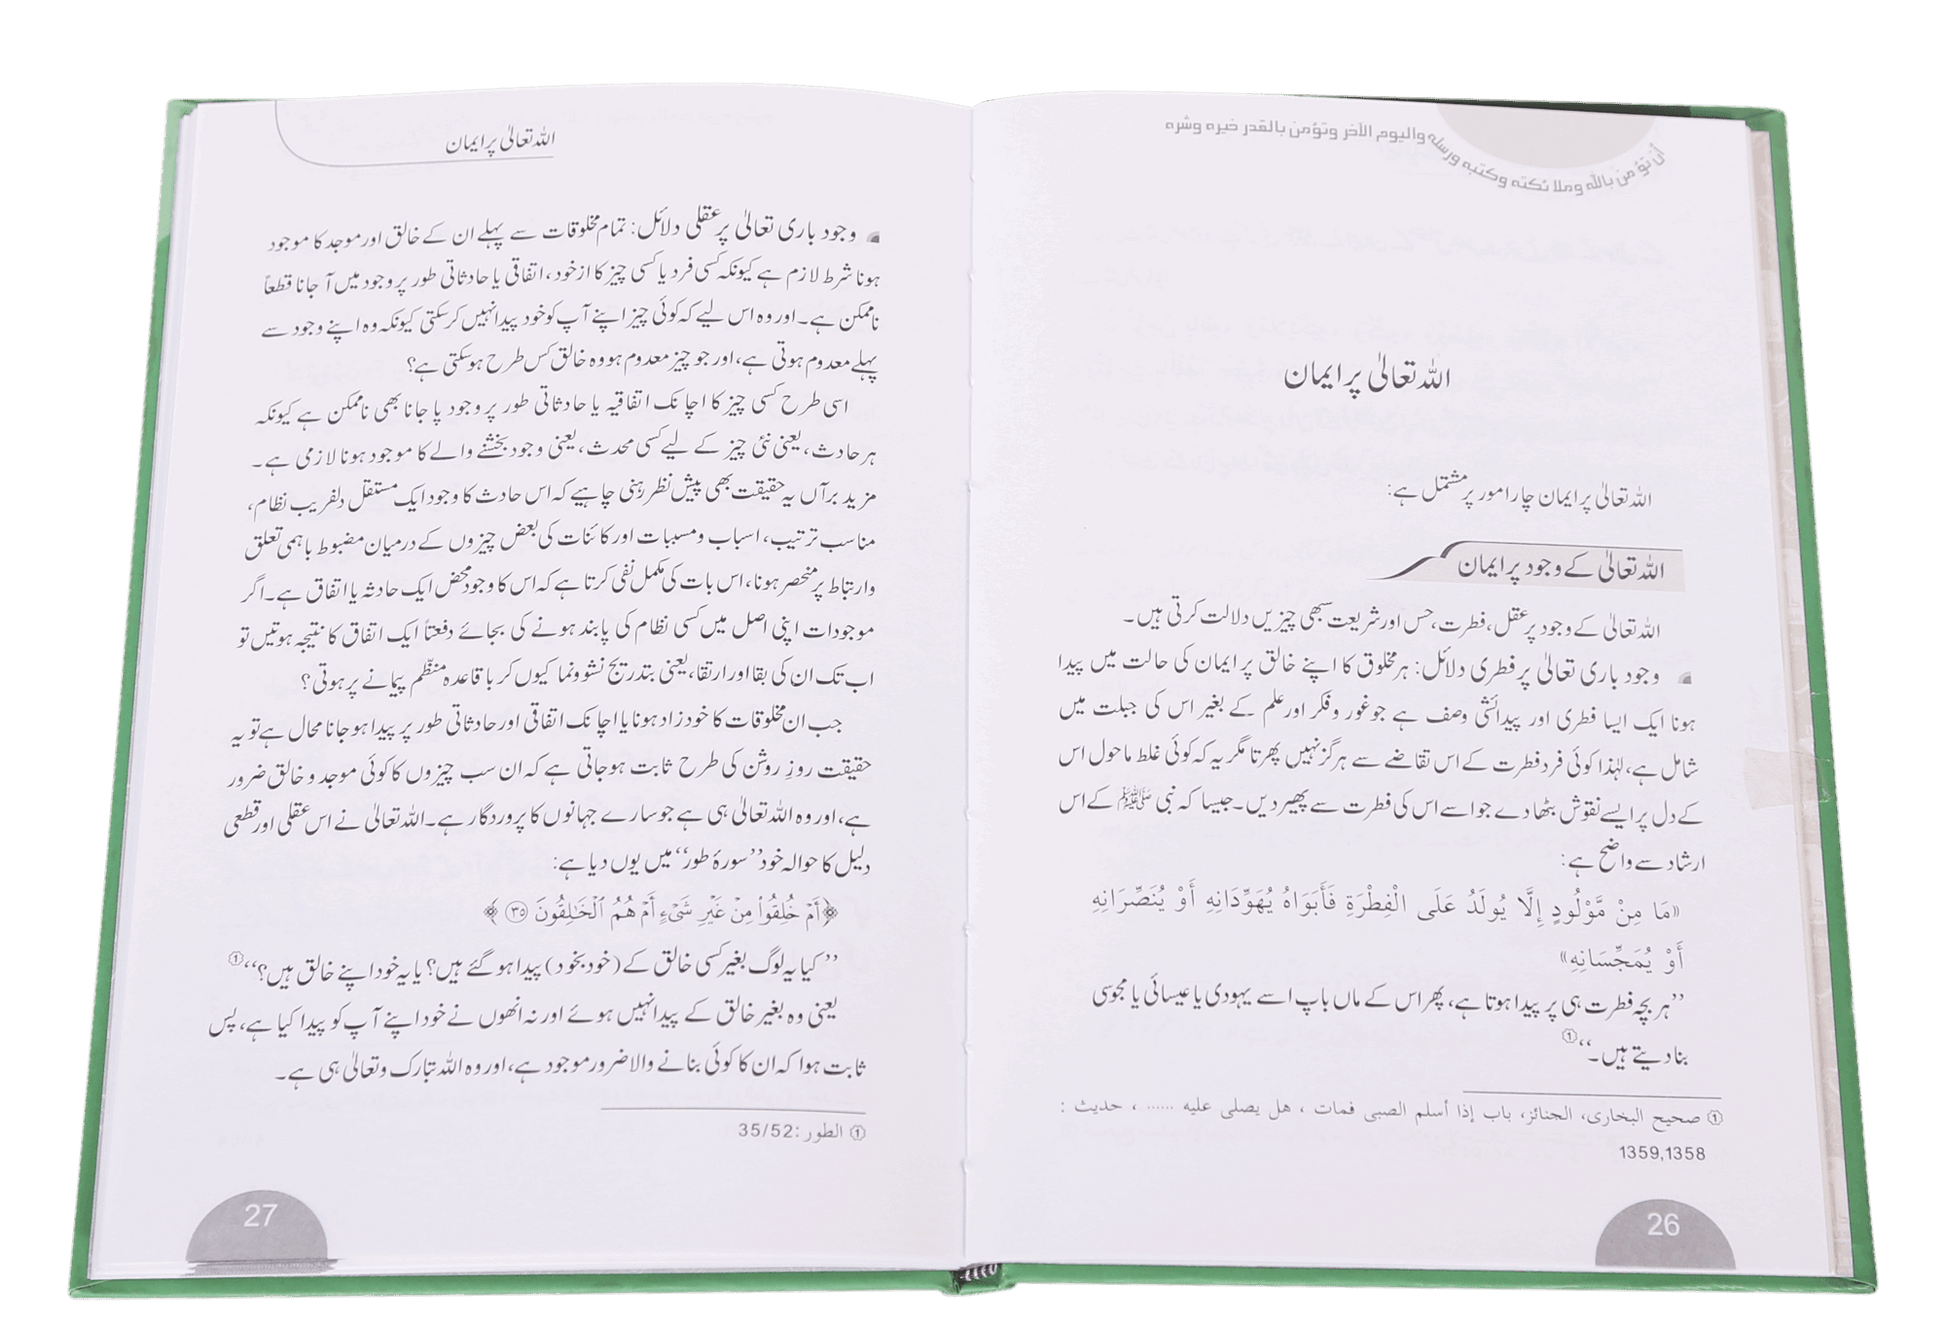 أن تؤمن بالله وملائكته وكتبه ورسله واليوم الآخر وتؤمن بالقدر خيره وشره
اللہ تعالیٰ پر ایمان
اللہ تعالیٰ پر ایمان چار امور پر مشتمل ہے:
اللہ تعالیٰ کے وجود پر ایمان
اللہ تعالیٰ کے وجود پر عقل، فطرت، حس اور شریعت سبھی چیزیں دلالت کرتی ہیں۔
وجود باری تعالیٰ پر فطری دلائل: ہر مخلوق کا اپنے خالق پر ایمان کی حالت میں پیدا
ہونا ایک ایسا فطری اور پیدائشی وصف ہے جو غور و فکر اور علم کے بغیر اس کی جبلت میں
شامل ہے، لہٰذا کوئی فرد فطرت کے اس تقاضے سے ہرگز نہیں پھرتا مگر یہ کہ کوئی غلط ماحول اس
کے دل پر ایسے نقوش بٹھا دے جو اسے اس کی فطرت سے پھیر دیں۔ جیسا کہ نبی ﷺ کے اس
ارشاد سے واضح ہے:
«مَا مِنْ مَّوْلُودٍ إِلَّا يُولَدُ عَلَى الْفِطْرَةِ فَأَبَوَاهُ يُهَوِّدَانِهِ أَوْ يُنَصِّرَانِهِ
أَوْ يُمَجِّسَانِهِ»
’’ہر بچہ فطرت ہی پر پیدا ہوتا ہے، پھر اس کے ماں باپ اسے یہودی یا عیسائی یا مجوسی
بنا دیتے ہیں۔‘‘①
① صحيح البخاری، الجنائز، باب إذا أسلم الصبی فمات ، هل يصلی عليه ...... ، حديث :
1359,1358
26
اللہ تعالیٰ پر ایمان
وجود باری تعالیٰ پر عقلی دلائل: تمام مخلوقات سے پہلے ان کے خالق اور موجد کا موجود
ہونا شرط لازم ہے کیونکہ کسی فرد یا کسی چیز کا از خود، اتفاقی یا حادثاتی طور پر وجود میں آ جانا قطعاً
ناممکن ہے۔ اور وہ اس لیے کہ کوئی چیز اپنے آپ کو خود پیدا نہیں کر سکتی کیونکہ وہ اپنے وجود سے
پہلے معدوم ہوتی ہے، اور جو چیز معدوم ہو وہ خالق کس طرح ہو سکتی ہے؟
اسی طرح کسی چیز کا اچانک اتفاقیہ یا حادثاتی طور پر وجود پا جانا بھی ناممکن ہے کیونکہ
ہر حادث، یعنی نئی چیز کے لیے کسی محدث، یعنی وجود بخشنے والے کا موجود ہونا لازمی ہے۔
مزید برآں یہ حقیقت بھی پیش نظر رہنی چاہیے کہ اس حادث کا وجود ایک مستقل دلفریب نظام،
مناسب ترتیب، اسباب و مسببات اور کائنات کی بعض چیزوں کے درمیان مضبوط باہمی تعلق
وارتباط پر منحصر ہونا، اس بات کی مکمل نفی کرتا ہے کہ اس کا وجود محض ایک حادثہ یا اتفاق ہے۔ اگر
موجودات اپنی اصل میں کسی نظام کی پابند ہونے کی بجائے دفعتاً ایک اتفاق کا نتیجہ ہوتیں تو
اب تک ان کی بقا اور ارتقا، یعنی بتدریج نشوونما کیوں کر باقاعدہ منظّم پیمانے پر ہوتی؟
جب ان مخلوقات کا خود زاد ہونا یا اچانک اتفاقی اور حادثاتی طور پر پیدا ہو جانا محال ہے تو یہ
حقیقت روزِ روشن کی طرح ثابت ہو جاتی ہے کہ ان سب چیزوں کا کوئی موجد و خالق ضرور
ہے، اور وہ اللہ تعالیٰ ہی ہے جو سارے جہانوں کا پروردگار ہے۔ اللہ تعالیٰ نے اس عقلی اور قطعی
دلیل کا حوالہ خود ’’سورۂ طور‘‘ میں یوں دیا ہے:
﴿أَمْ خُلِقُوا۟ مِنْ غَيْرِ شَىْءٍ أَمْ هُمُ ٱلْخَـٰلِقُونَ ٣٥﴾
’’کیا یہ لوگ بغیر کسی خالق کے (خود بخود) پیدا ہو گئے ہیں؟ یا یہ خود اپنے خالق ہیں؟‘‘①
یعنی وہ بغیر خالق کے پیدا نہیں ہوئے اور نہ انھوں نے خود اپنے آپ کو پیدا کیا ہے، پس
ثابت ہوا کہ ان کا کوئی بنانے والا ضرور موجود ہے، اور وہ اللہ تبارک وتعالیٰ ہی ہے۔
① الطور: 35/52
27